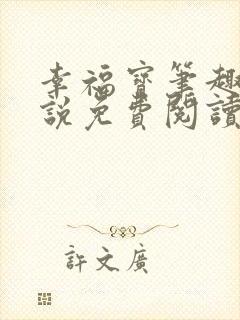 幸福寶筆趣
說免費閱讀
許文廣